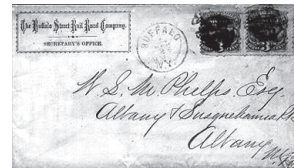 The Buffalo Street Rail Road Company.
SECRETARY'S OFFICE.
BUFFALO
N.Y.
W. S. M. Phelps, Esq.
Albany & Susquehanna
Albany